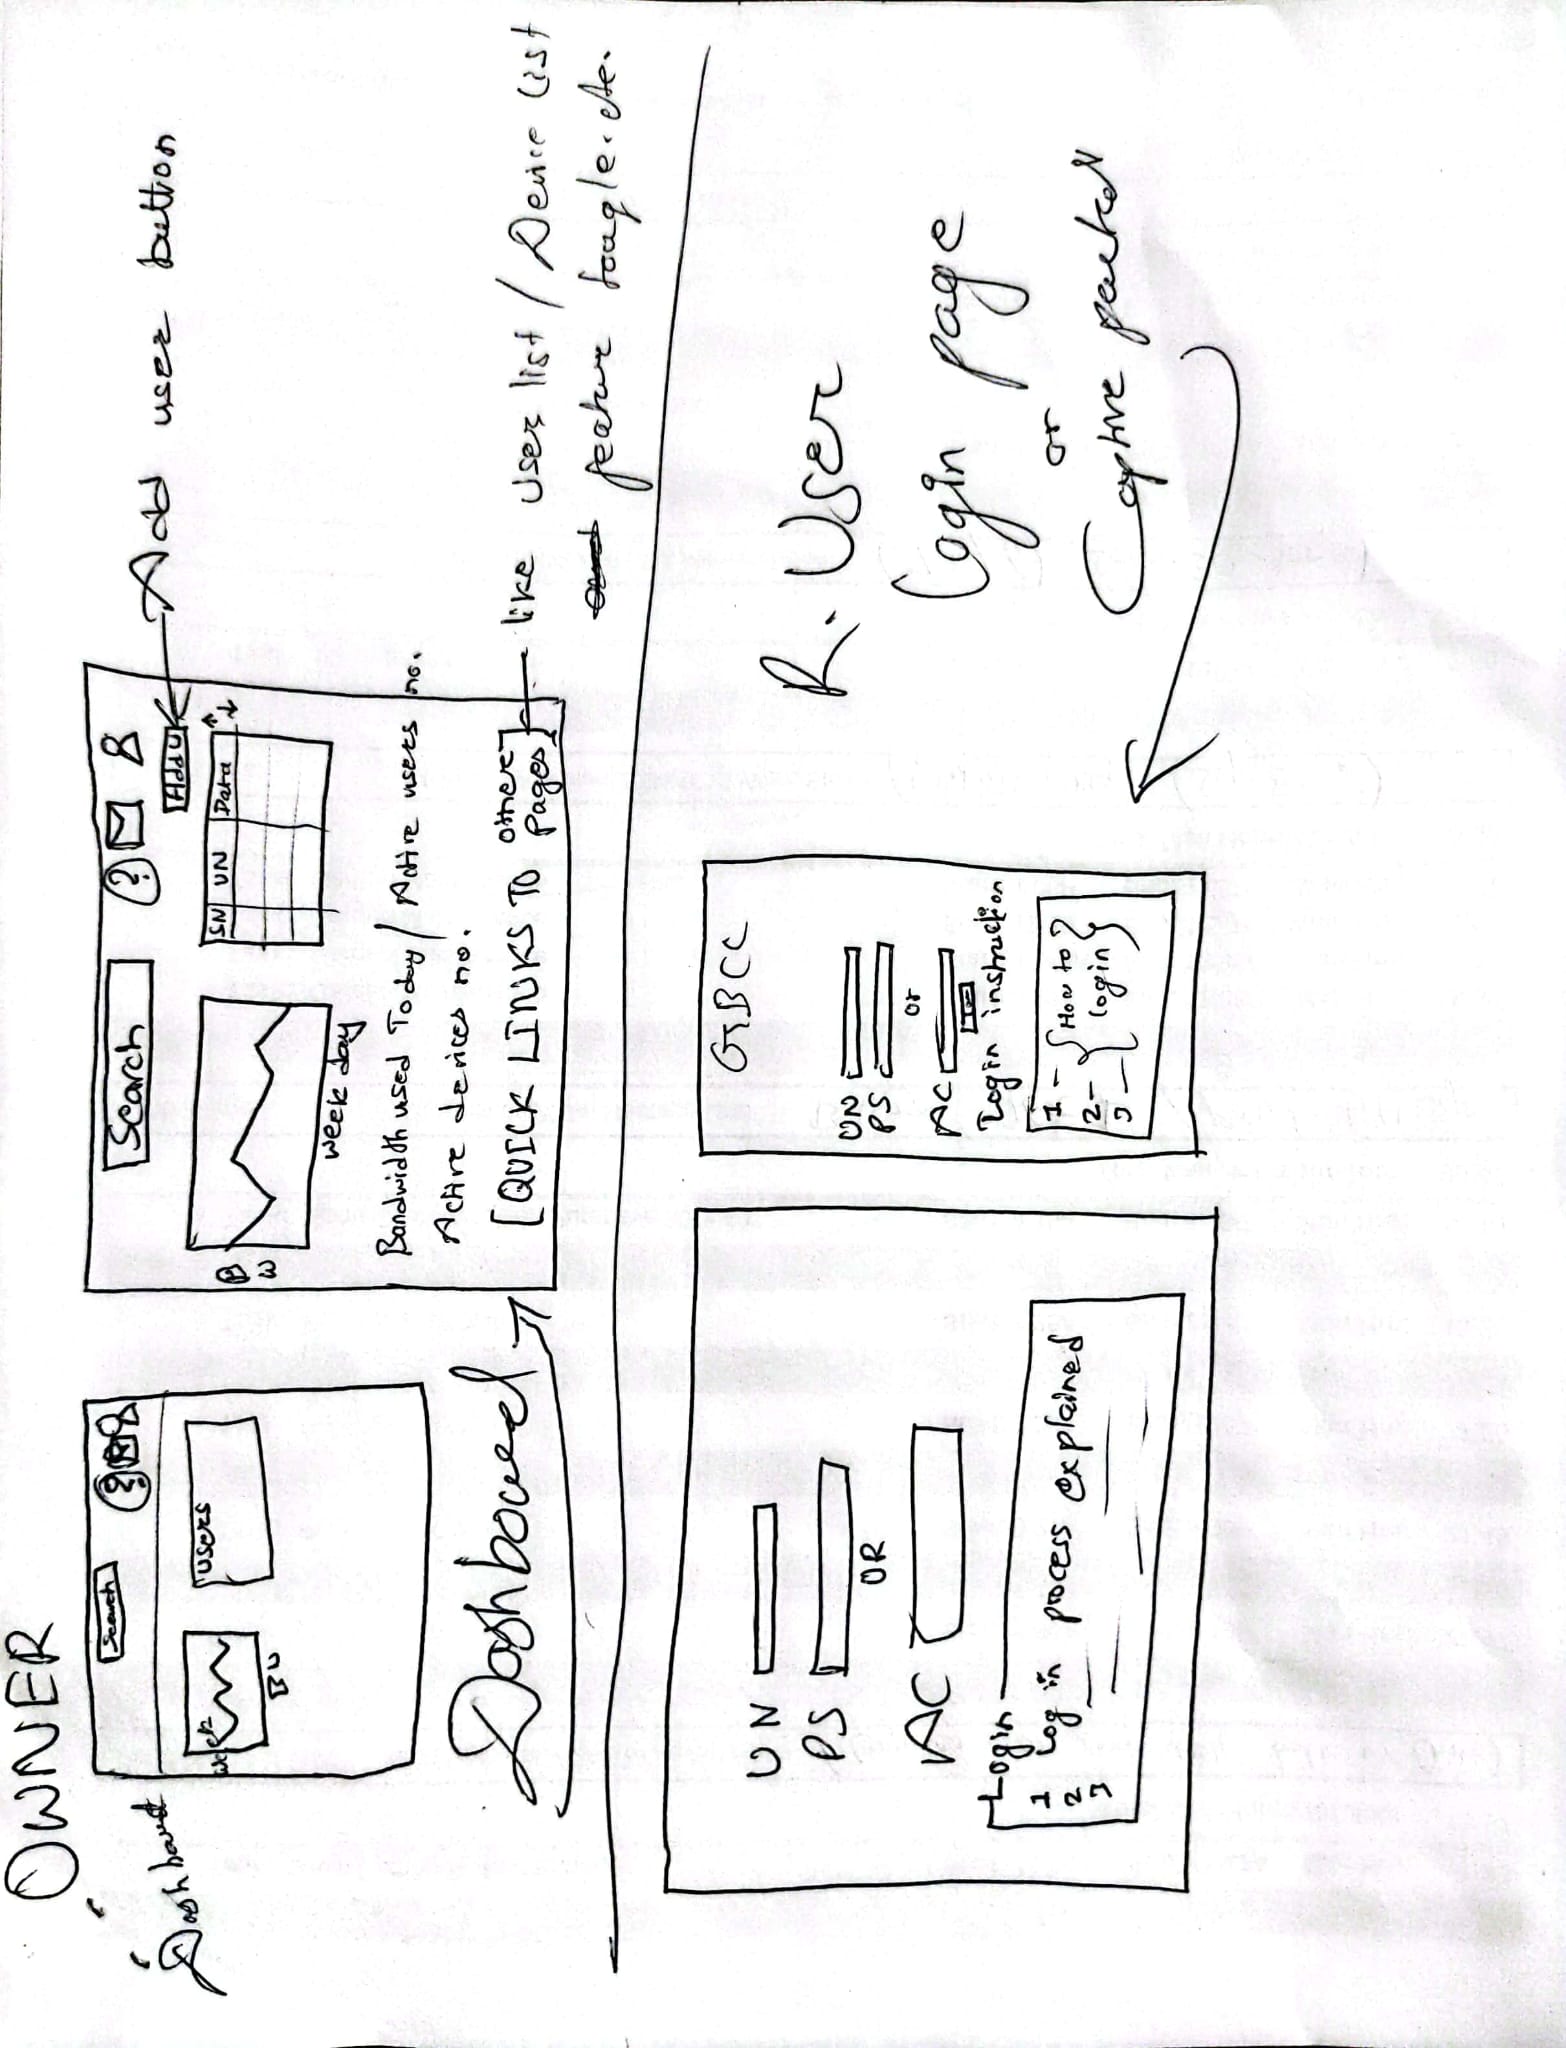 OWNER
Dashboard
Search
?
week
BW
users
Search
?
Add U
Add user button
B
W
SN UN Data
week day
Bandwidth used Today / Active users no.
Active devices no.
[QUICK LINKS TO other pages]
like user list / Device list
feature toogle. etc.
Dashboard
UN
PS
OR
AC
Login
1 Log in process explained
2
3
GBCC
UN
PS
or
AC
Login instruction
1 - { How to
2 - login }
3 -
R. User
Login page
or
Captive